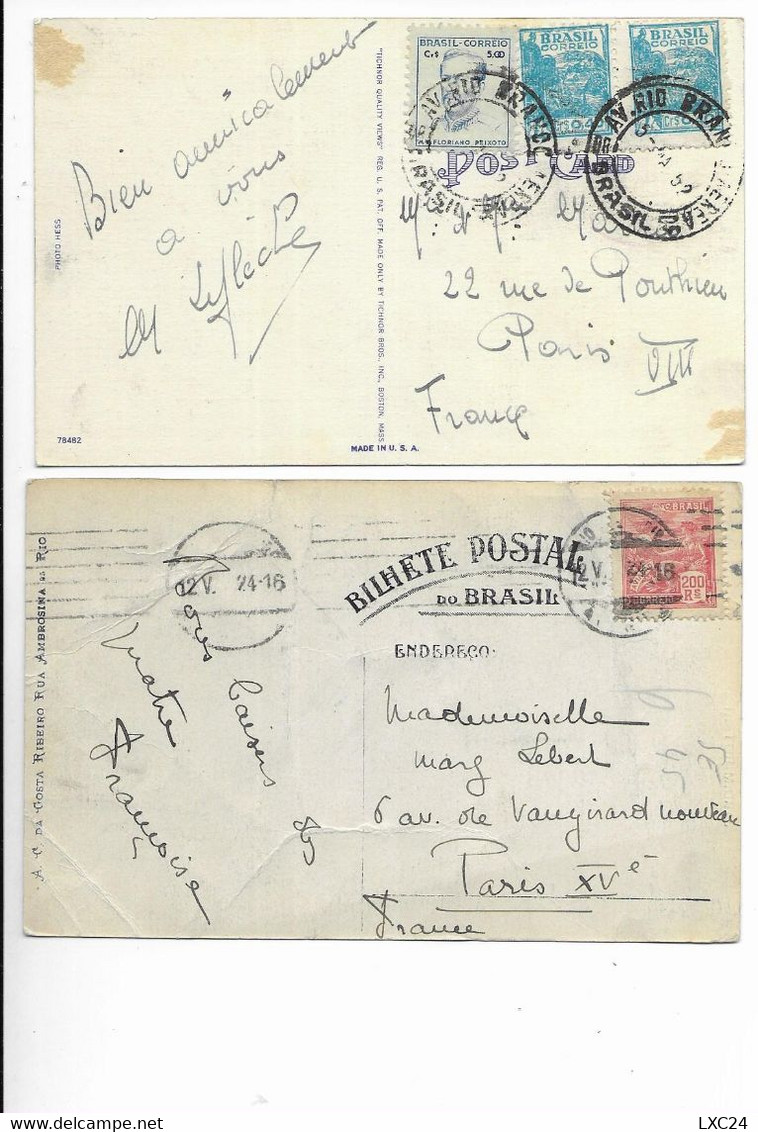 BRASIL-CORREIO
Cr$ 5.00
FLORIANO PEIXOTO
BRASIL
CORREIO
BRASIL
CORREIO
AV. RIO BRANCO
BRASIL
AV. RIO BRAN
AEREA
BRASIL
POST CARD
Bien amicalement
à vous
PHOTO HESS
"TICHNOR QUALITY VIEWS" REG. U. S. PAT. OFF. MADE ONLY BY TICHNOR BROS., INC., BOSTON, MASS.
22 rue de Ponthieu
Paris VIII
France
78482
MADE IN U. S. A.
BRASIL
200
RS
12 V. 24-16
2 V. 24-16
BILHETE POSTAL
DO BRASIL
ENDEREÇO:
A. C. DA COSTA RIBEIRO RUA AMBROSINA RIO
baisers de
Françoise
Mademoiselle
Marg Lebert
6 av. de Vaugirard nouveau
Paris XVe
France
LXC24